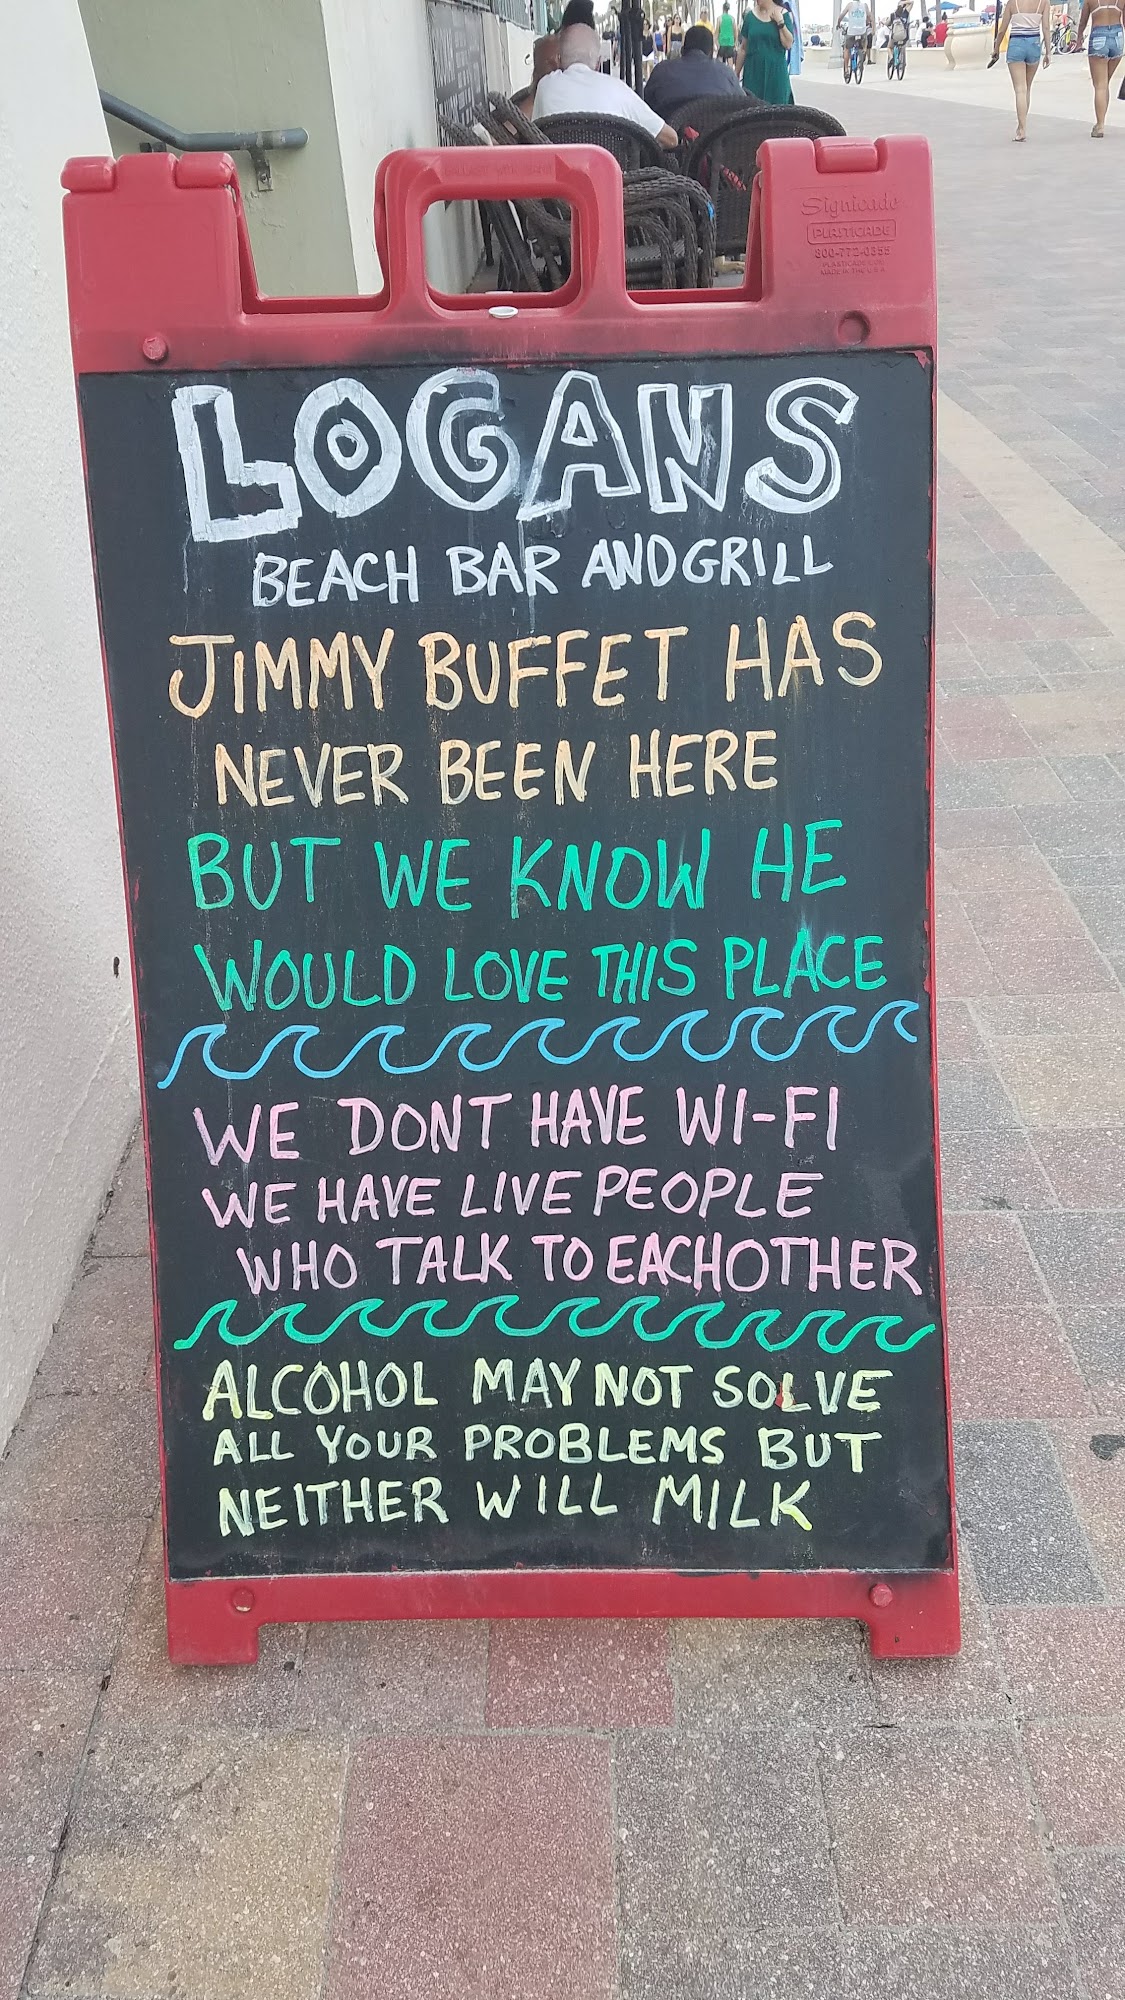 Signicade
PLASTICADE
800-772-0355
PLASTICADE.COM
MADE IN THE U.S.A.
LOGANS
BEACH BAR AND GRILL
JIMMY BUFFET HAS
NEVER BEEN HERE
BUT WE KNOW HE
WOULD LOVE THIS PLACE
WE DONT HAVE WI-FI
WE HAVE LIVE PEOPLE
WHO TALK TO EACHOTHER
ALCOHOL MAY NOT SOLVE
ALL YOUR PROBLEMS BUT
NEITHER WILL MILK